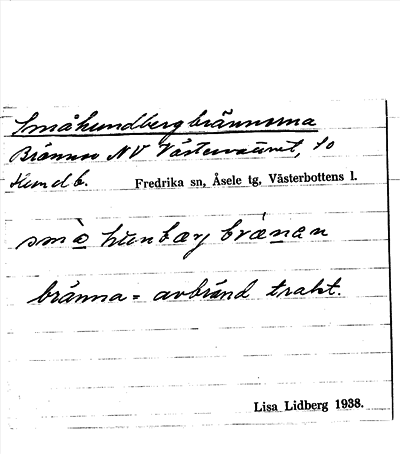 Småhundbergbrännorna
Brännor NV Västervattnet, SO
Hundb. Fredrika sn, Åsele tg, Västerbottens l.
små hunbærj brænan
bränna = avbränd trakt.
Lisa Lidberg 1938.